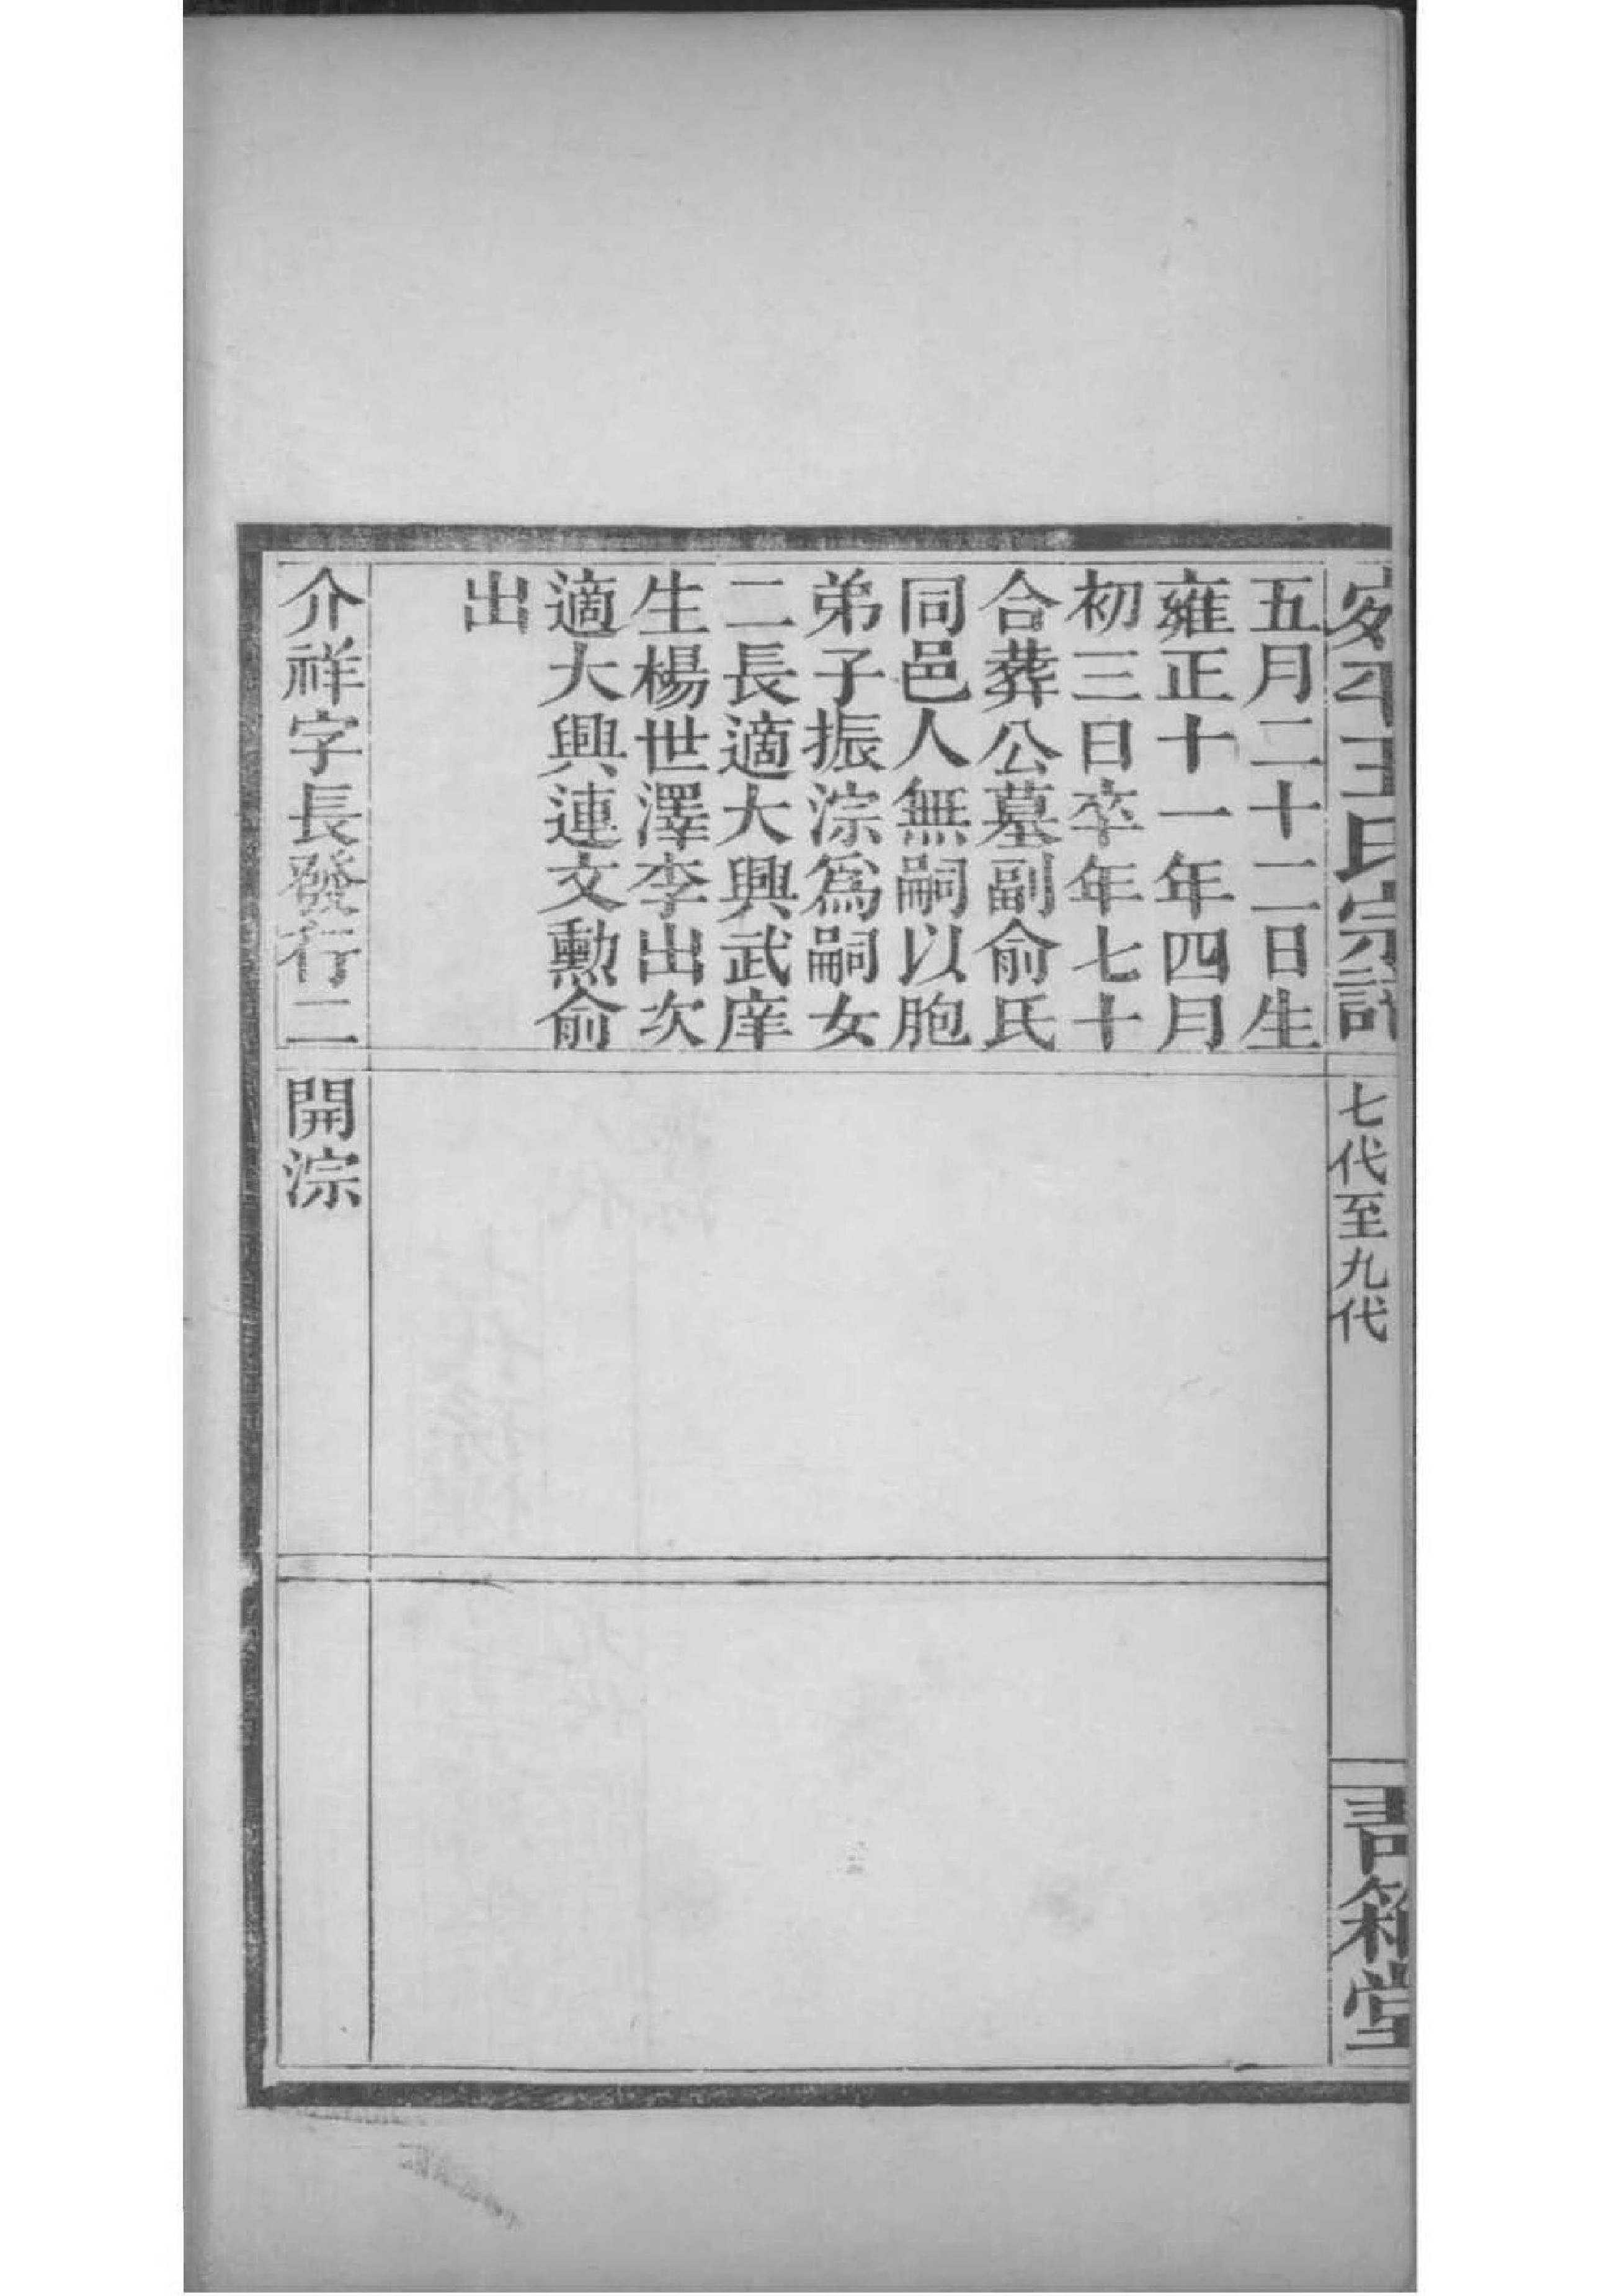 安平王氏宗譜
七代至九代
書箱堂
五月二十二日生
雍正十一年四月
初三日卒年七十
合葬公墓副俞氏
同邑人無嗣以胞
弟子振淙為嗣女
二長適大興武庠
生楊世澤李出次
適大興連文勳俞
出
介祥字長發行二
開淙